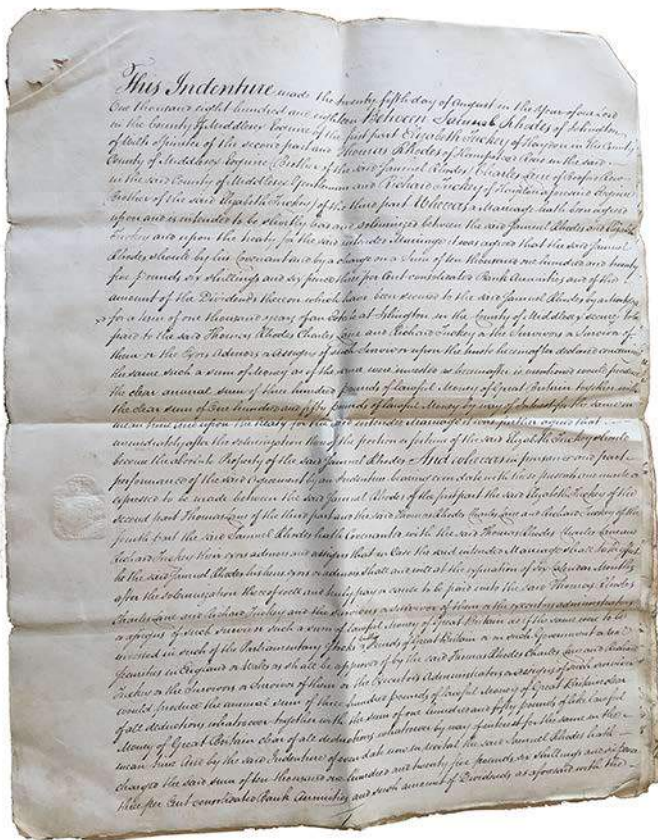 This Indenture made the twenty fifth day of August in the Year of our Lord
One thousand eight hundred and eighteen Between Samuel Rhodes of Islington
in the County of Middlesex Esquire of the first part Elizabeth Tuckey of Haydon in the County
of Wilts Spinster of the second part and Thomas Rhodes of Hampstead Road in the said
County of Middlesex Esquire (Brother of the said Samuel Rhodes) Charles Lane of
in the said County of Middlesex Gentleman and Richard Tuckey of Haydon aforesaid Esquire
Brother of the said Elizabeth Tuckey) of the third part Whereas a Marriage hath been agreed
upon and is intended to be shortly had and solemnized between the said Samuel Rhodes and Elizabeth
Tuckey and upon the treaty for the said intended Marriage it was agreed that the said Samuel
Rhodes should by his Covenant and by a charge on a Sum of ten thousand one hundred and twenty
five pounds six shillings and six pence three per Cent consolidated Bank Annuities and of the
amount of the Dividends thereon which have been secured to the said Samuel Rhodes by
for a term of one thousand years of an Estate at Islington in the County of Middlesex secure to be
paid to the said Thomas Rhodes Charles Lane and Richard Tuckey or the Survivors or Survivor of
them or the Exors Admors or assigns of such Survivor upon the trusts hereinafter declared concerning
the same such a sum of Money as if the same were invested as hereinafter is mentioned would produce
the clear annual sum of three hundred pounds of lawful Money of Great Britain together with
the clear sum of One hundred and fifty pounds of lawful Money by way of Interest for the same in the
mean time And upon the treaty for the said intended Marriage it was further agreed that
immediately after the solemnization thereof the portion or fortune of the said Elizabeth Tuckey should
become the absolute Property of the said Samuel Rhodes And whereas in pursuance and part
performance of the said Agreement by an Indenture bearing even date with these presents and made or
expressed to be made between the said Samuel Rhodes of the first part the said Elizabeth Tuckey of the
second part Thomas Lane of the third part and the said Thomas Rhodes Charles Lane and Richard Tuckey of the
fourth part the said Samuel Rhodes hath Covenanted with the said Thomas Rhodes Charles Lane and
Richard Tuckey their exors admors and assigns that in Case the said intended Marriage shall take effect
he the said Samuel Rhodes his heirs exors or admors shall and will at the expiration of Six Calendar Months
after the solemnization thereof well and truly pay or cause to be paid unto the said Thomas Rhodes
Charles Lane and Richard Tuckey and the survivors or survivor of them or the executors administrators
or assigns of such survivor such a sum of lawful Money of Great Britain as if the same were to be
invested in such of the Parliamentary Stocks or Funds of Great Britain or on such Government or real
Securities in England or Wales as shall be approved of by the said Thomas Rhodes Charles Lane and Richard
Tuckey or the Survivors or Survivor of them or the Executors Administrators or assigns of such survivor
would produce the annual sum of three hundred pounds of lawful Money of Great Britain clear
of all deductions whatsoever together with the sum of one hundred and fifty pounds of like lawful
Money of Great Britain clear of all deductions whatsoever by way of interest for the same in the
mean time And by the said Indenture of even date now in recital the said Samuel Rhodes hath
charged the said sum of ten thousand one hundred and twenty five pounds six shillings and six pence
three per Cent consolidated Bank Annuities and such amount of Dividends as aforesaid with the